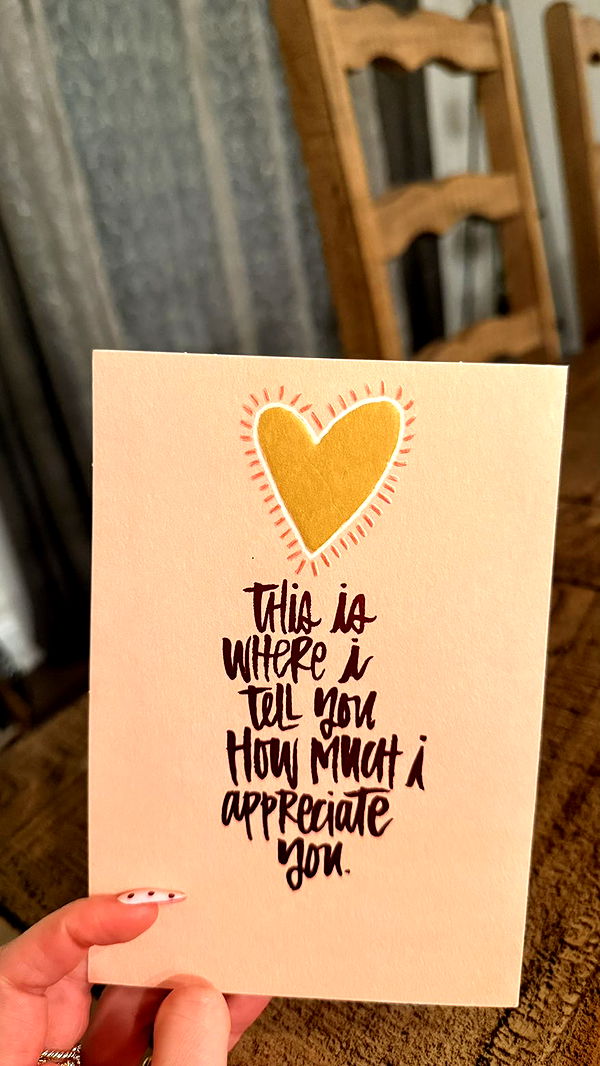 THis is
WHeRe i
tell you
How MucH i
appReciate
you.